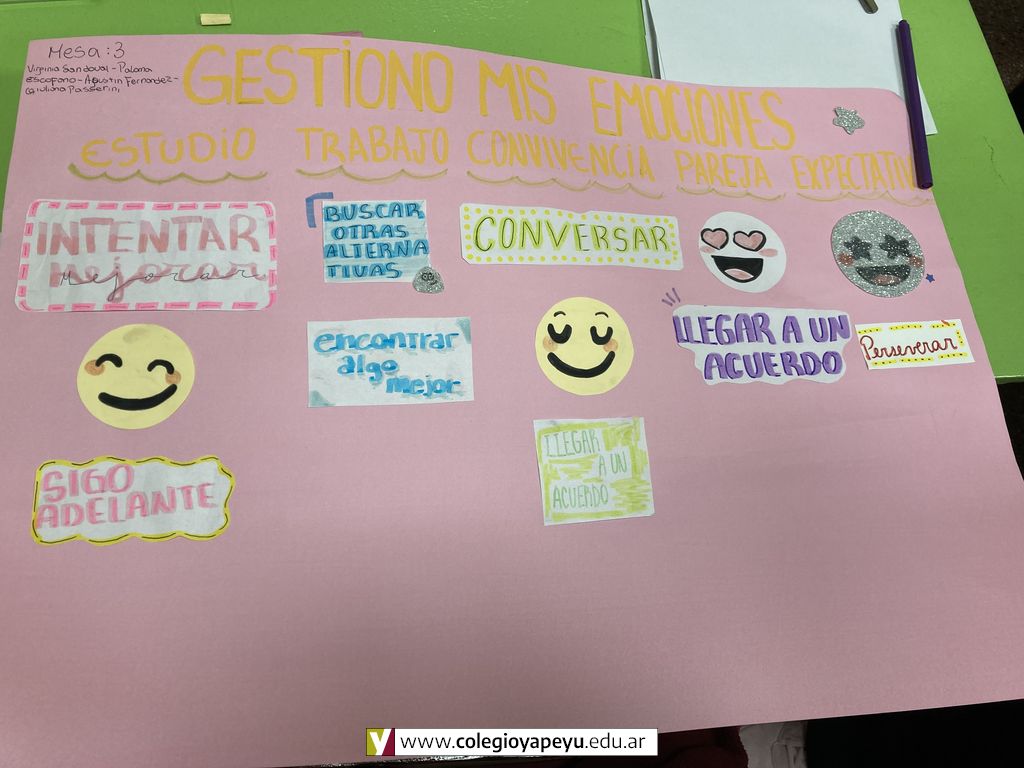 Mesa: 3
Virginia Sandoval - Paloma
Escofano - Agustin Fernandez -
Giuliana Passerini
GESTIONO MIS EMOCIONES
ESTUDIO TRABAJO CONVIVENCIA PAREJA EXPECTATIV
INTENTAR
mejorar
BUSCAR
OTRAS
ALTERNA
TIVAS
CONVERSAR
encontrar
algo
mejor
LLEGAR A UN
ACUERDO
Perseverar
SIGO
ADELANTE
LLEGAR
A UN
ACUERDO
www.colegioyapeyu.edu.ar